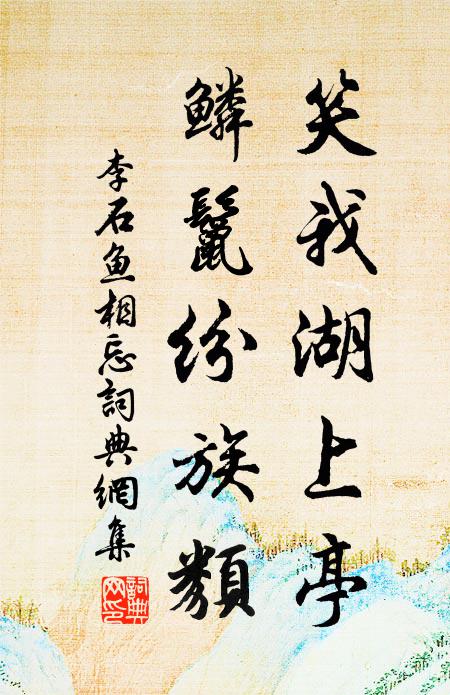 笑我湖上亭
鱗鬣紛族類
李石魚相忘詞典網集